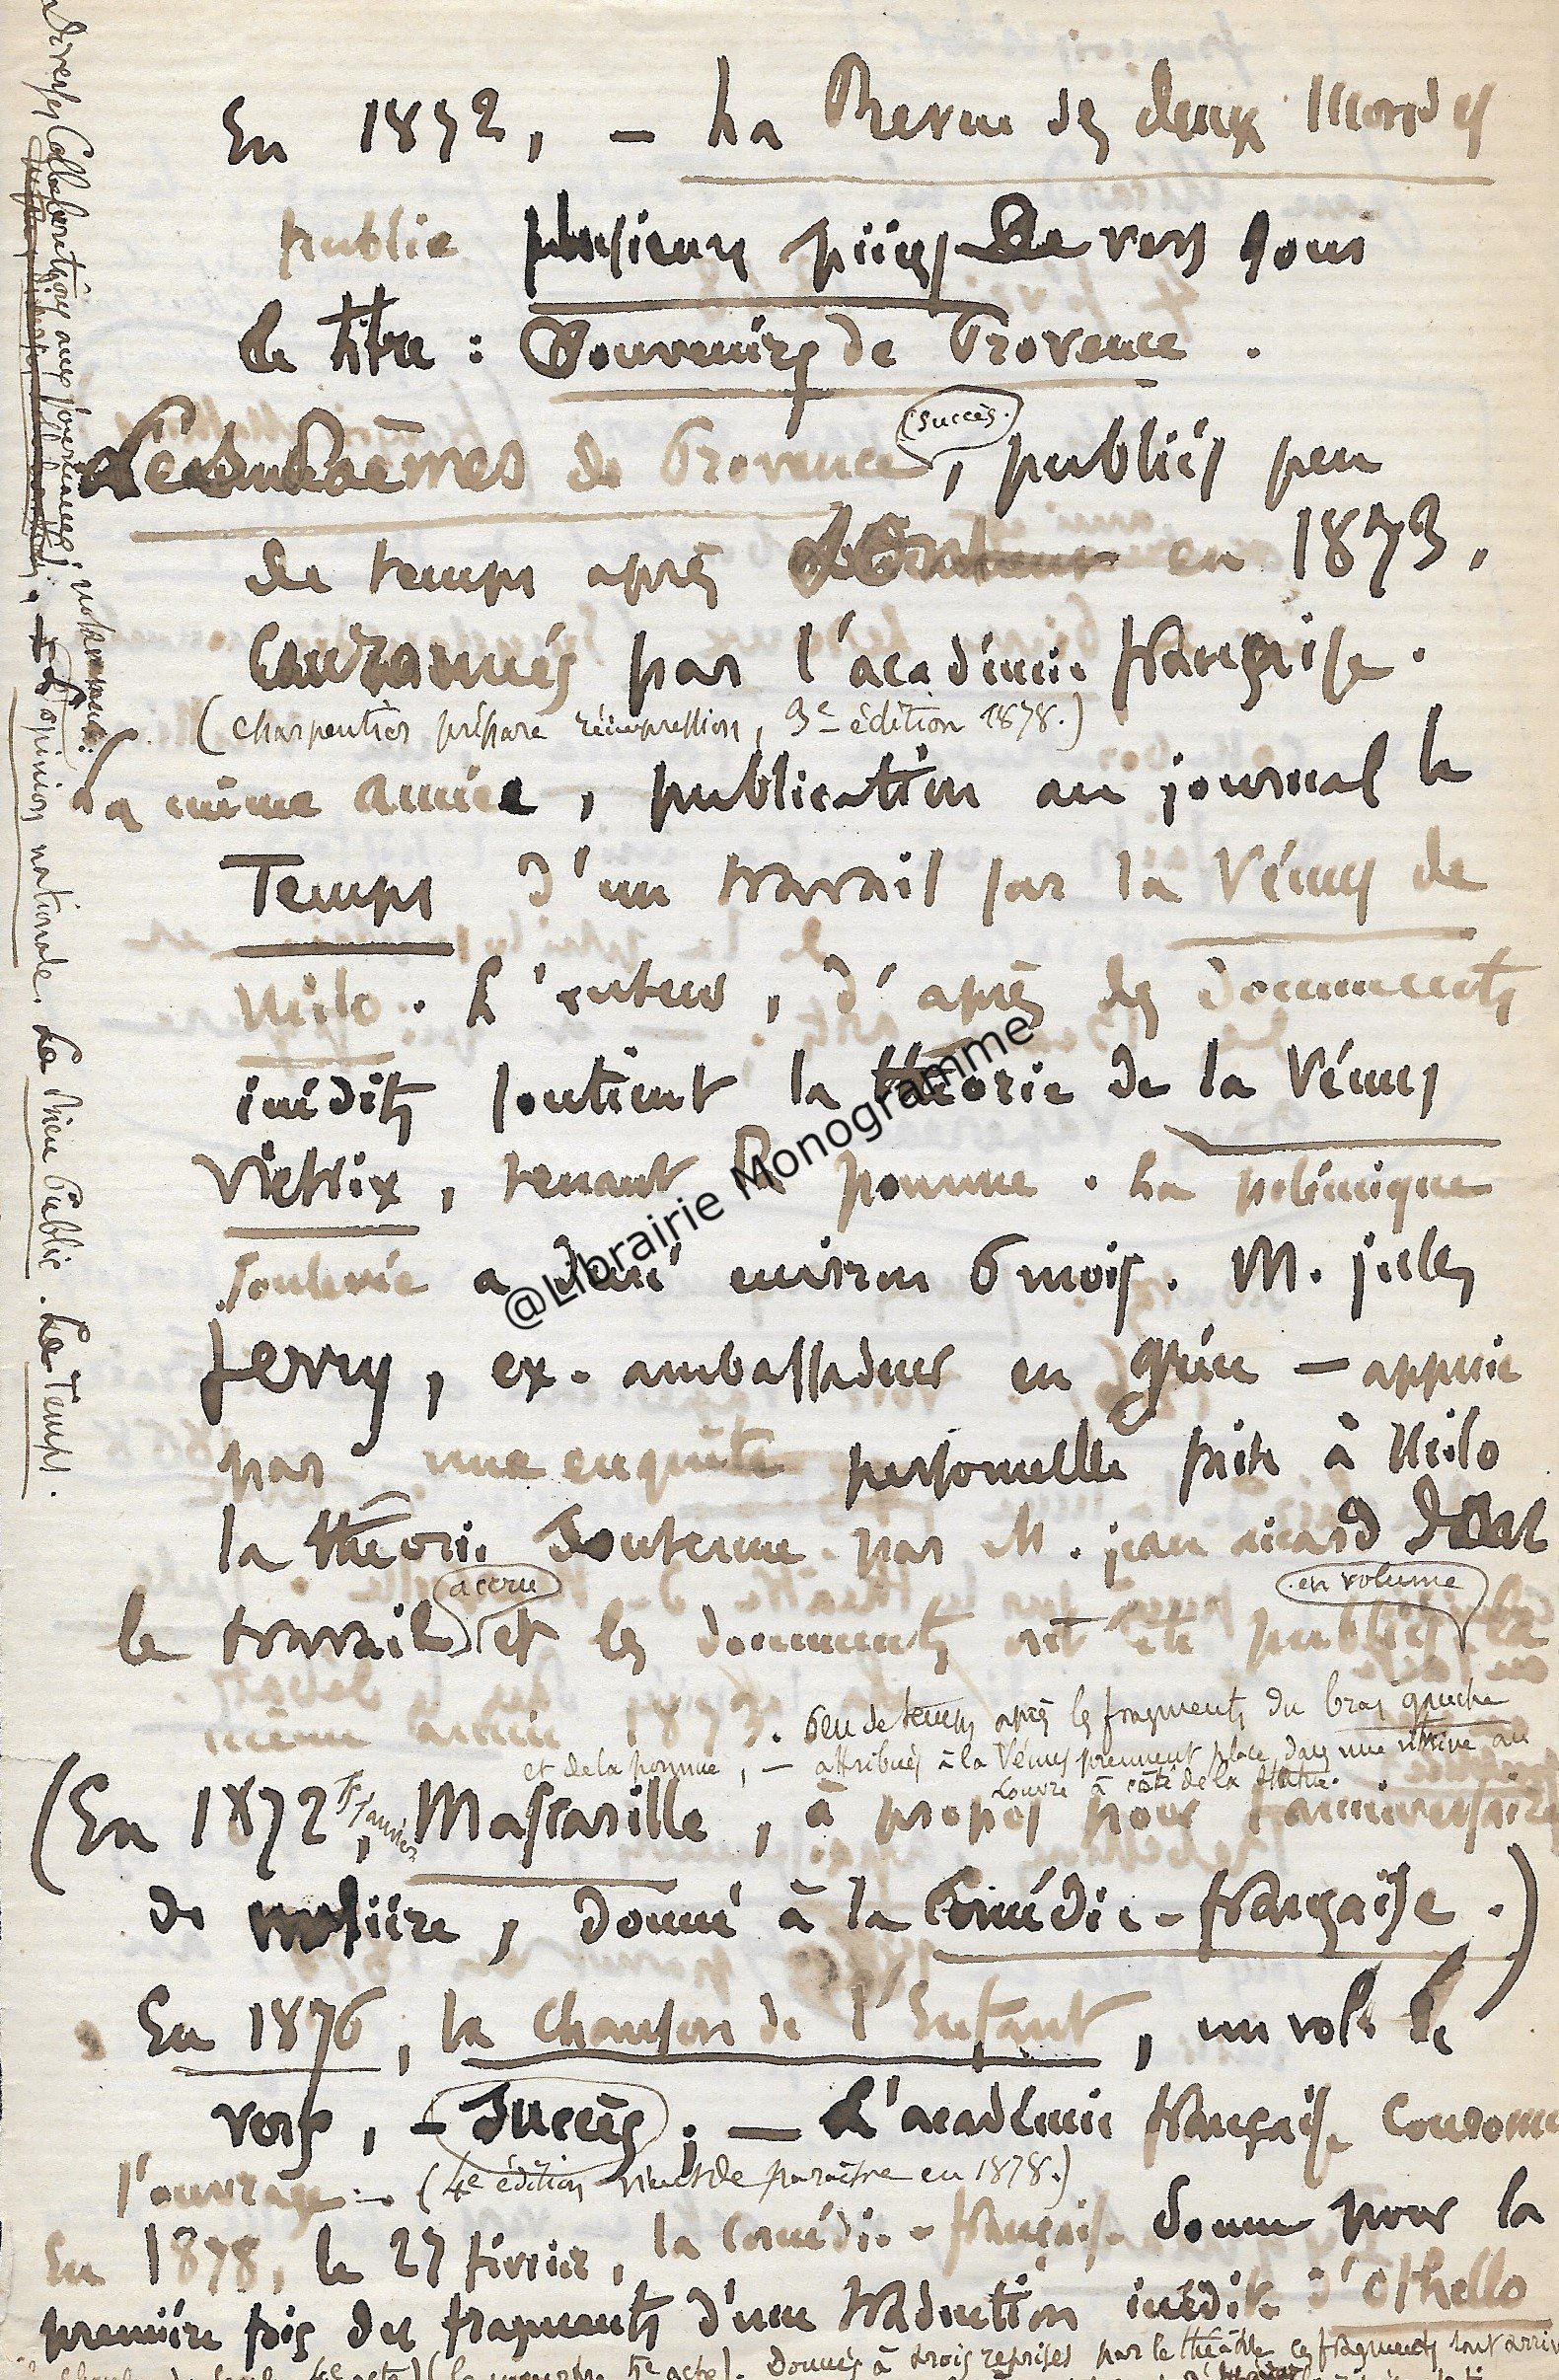 En 1872, — La Revue des deux Mondes
publie plusieurs pièces de vers sous
le titre : Souvenirs de Provence .
Les Poèmes de Provence (succès.), publiés peu
de temps après en 1873,
Couronnés par l'académie française.
(Charpentier prépare réimpression, 3e édition 1878.)
La même année, publication au journal le
Temps d'un travail sur la Vénus de
Milo. L'auteur, d'après des documents
inédits soutient la théorie de la Vénus
Victrix, tenant la pomme. La polémique
soulevée a duré environ 6 mois. M. jules
ferry, ex-ambassadeur en grèce — appuie
par une enquête personnelle faite à Milo
la théorie soutenue par M. jean aicard dont
accru en volume
le travail et les documents ont été publiés la
même année 1873. Peu de temps après les fragments du bras gauche
et de la pomme, — attribués à la Vénus prennent place dans une vitrine au
Louvre à côté de la statue.
(En 1872, janvier, Mascarille, à propos pour l'anniversaire
de molière, donné à la Comédie-française.)
En 1876, la Chanson de l'Enfant, un vol. de
vers, — succès ; — L'académie française couronne
l'ouvrage. (4e édition vient de paraître en 1878.)
En 1878, le 27 février, la Comédie-française donne pour la
première fois des fragments d'une traduction inédite d'Othello
Donnés à trois reprises par le théâtre ces fragments sont
diverses Collaborations aux journaux notamment :
L'opinion nationale. Le Bien Public. Le Temps.
@Librairie Monogramme